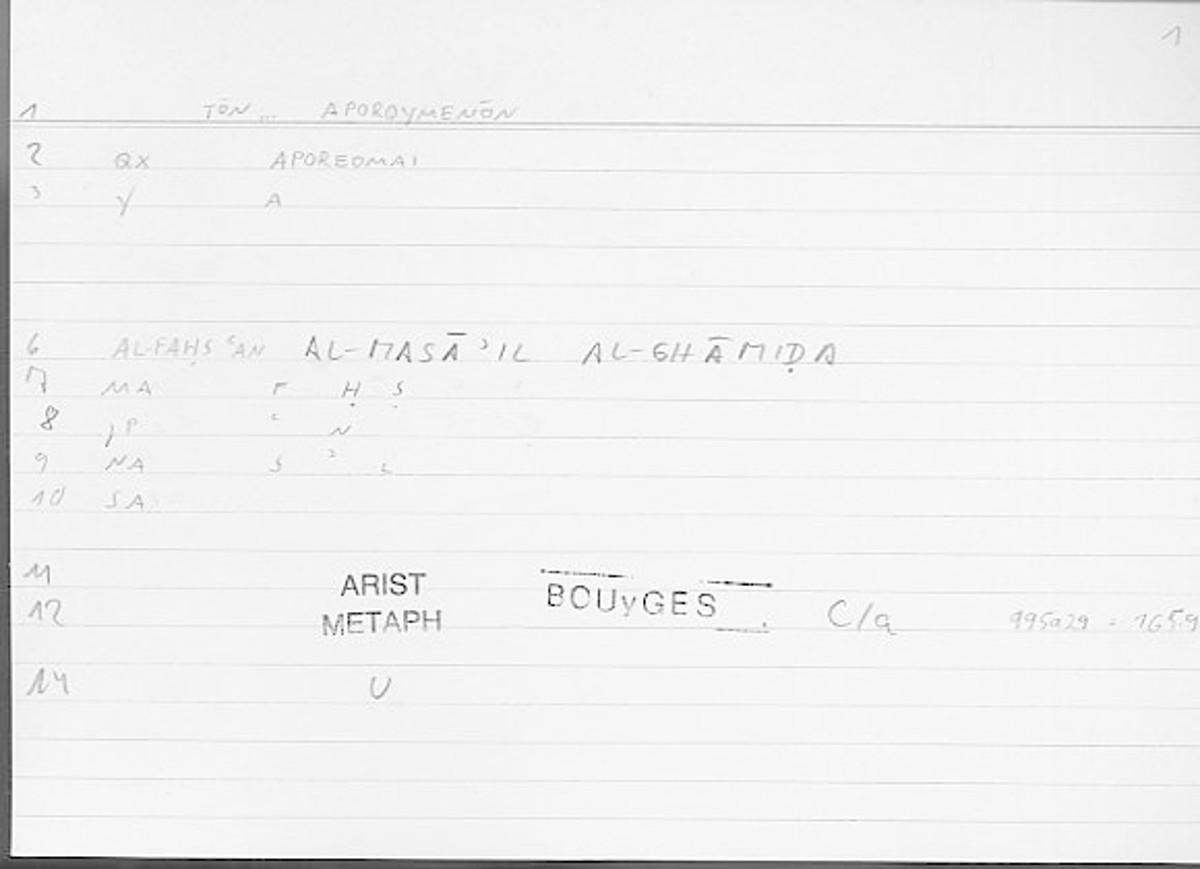 1
1 TŌN ... APOROYMENŌN
2 QX APOREOMAI
3 Y A
6 AL-FAḤṢ ʿAN AL-MASĀʾIL AL-GHĀMIḌA
7 MA F Ḥ Ṣ
8 JP ʿ N
9 NA S ʾ L
10 SA
11 ARIST BOUyGES
12 METAPH C/a 995a29 = 165.9
14 U